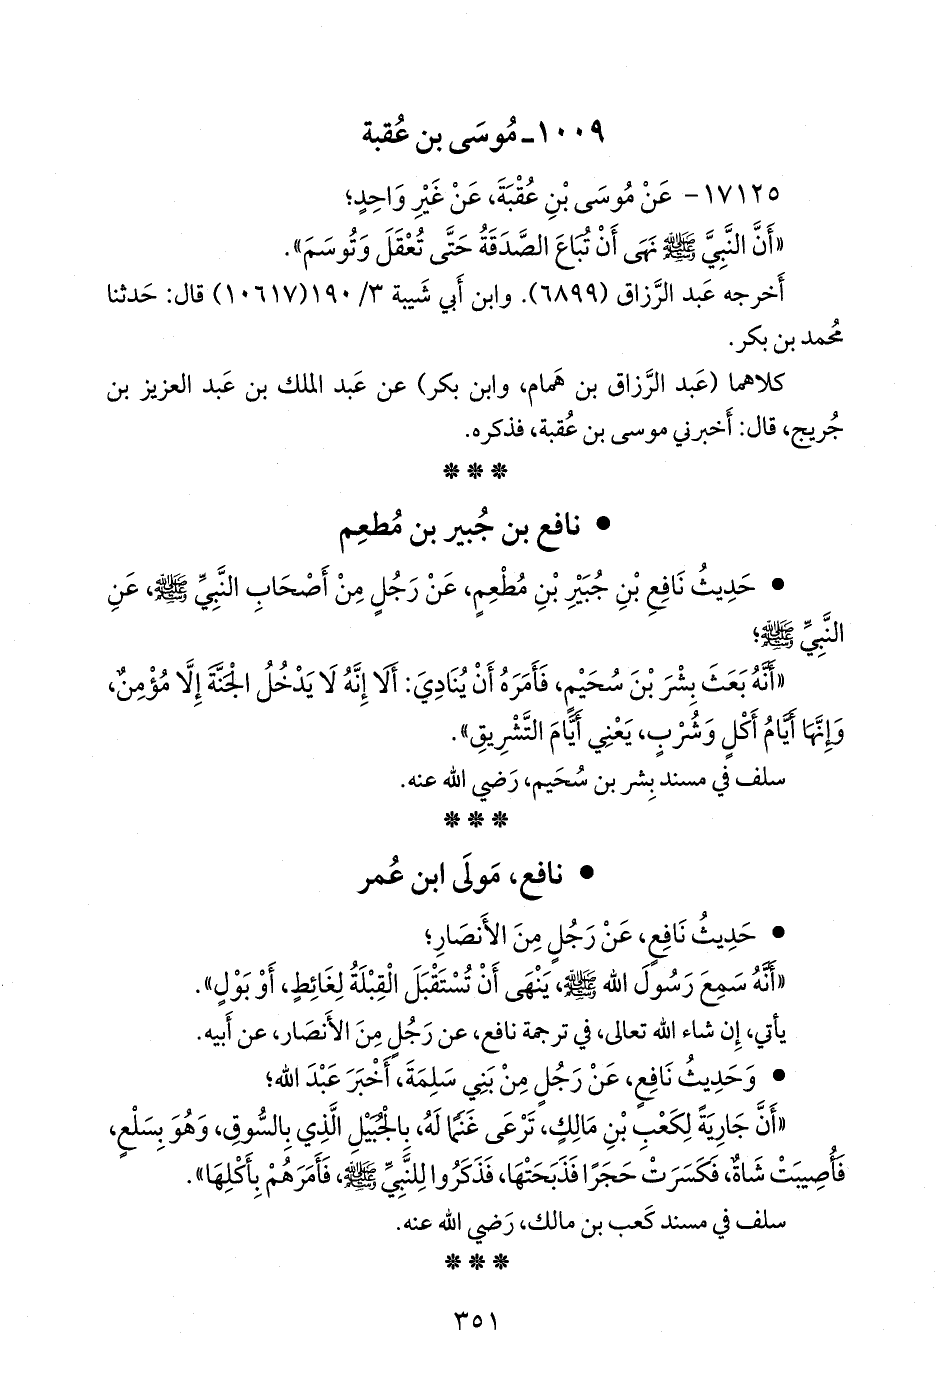 ١٠٠٩ـ مُوسَى بن عُقبة
١٧١٢٥ - عَنْ مُوسَى بْنِ عُقْبَةَ، عَنْ غَيْرِ وَاحِدٍ؛
«أَنَّ النَّبِيَّ ﷺ نَهَى أَنْ تُبَاعَ الصَّدَقَةُ حَتَّى تُعْقَلَ وَتُوسَمَ».
أَخرجه عَبد الرَّزاق (٦٨٩٩). وابن أَبي شَيبة ٣/ ١٩٠(١٠٦١٧) قال: حَدثنا
مُحمد بن بكر.
كلاهما (عَبد الرَّزاق بن هَمام، وابن بكر) عن عَبد الملك بن عَبد العزيز بن
جُريج، قال: أَخبرني موسى بن عُقبة، فذكره.
❊ ❊ ❊
• نافع بن جُبير بن مُطعِم
• حَدِيثُ نَافِعِ بْنِ جُبَيْرِ بْنِ مُطْعِمٍ، عَنْ رَجُلٍ مِنْ أَصْحَابِ النَّبِيِّ ﷺ، عَنِ
النَّبِيِّ ﷺ؛
«أَنَّهُ بَعَثَ بِشْرَ بْنَ سُحَيْمٍ، فَأَمَرَهُ أَنْ يُنَادِيَ: أَلَا إِنَّهُ لَا يَدْخُلُ الْجَنَّةَ إِلَّا مُؤْمِنٌ،
وَإِنَّهَا أَيَّامُ أَكْلٍ وَشُرْبٍ، يَعْنِي أَيَّامَ التَّشْرِيقِ».
سلف في مسند بِشر بن سُحَيم، رَضي الله عنه.
❊ ❊ ❊
• نافع، مَولَى ابن عُمر
• حَدِيثُ نَافِعٍ، عَنْ رَجُلٍ مِنَ الأَنصَارِ؛
«أَنَّهُ سَمِعَ رَسُولَ الله ﷺ، يَنْهَى أَنْ تُسْتَقْبَلَ الْقِبْلَةُ لِغَائِطٍ، أَوْ بَوْلٍ».
يأتي، إِن شاء الله تعالى، في ترجمة نافع، عن رَجُلٍ مِنَ الأَنصَار، عن أَبيه.
• وَحَدِيثُ نَافِعٍ، عَنْ رَجُلٍ مِنْ بَنِي سَلِمَةَ، أَخْبَرَ عَبْدَ الله؛
«أَنَّ جَارِيَةً لِكَعْبِ بْنِ مَالِكٍ، تَرْعَى غَنَمًا لَهُ، بِالْجُبَيْلِ الَّذِي بِالسُّوقِ، وَهُوَ بِسَلْعٍ،
فَأُصِيبَتْ شَاةٌ، فَكَسَرَتْ حَجَرًا فَذَبَحَتْهَا، فَذَكَرُوا لِلنَّبِيِّ ﷺ، فَأَمَرَهُمْ بِأَكْلِهَا».
سلف في مسند كَعب بن مالك، رَضي الله عنه.
❊ ❊ ❊
٣٥١